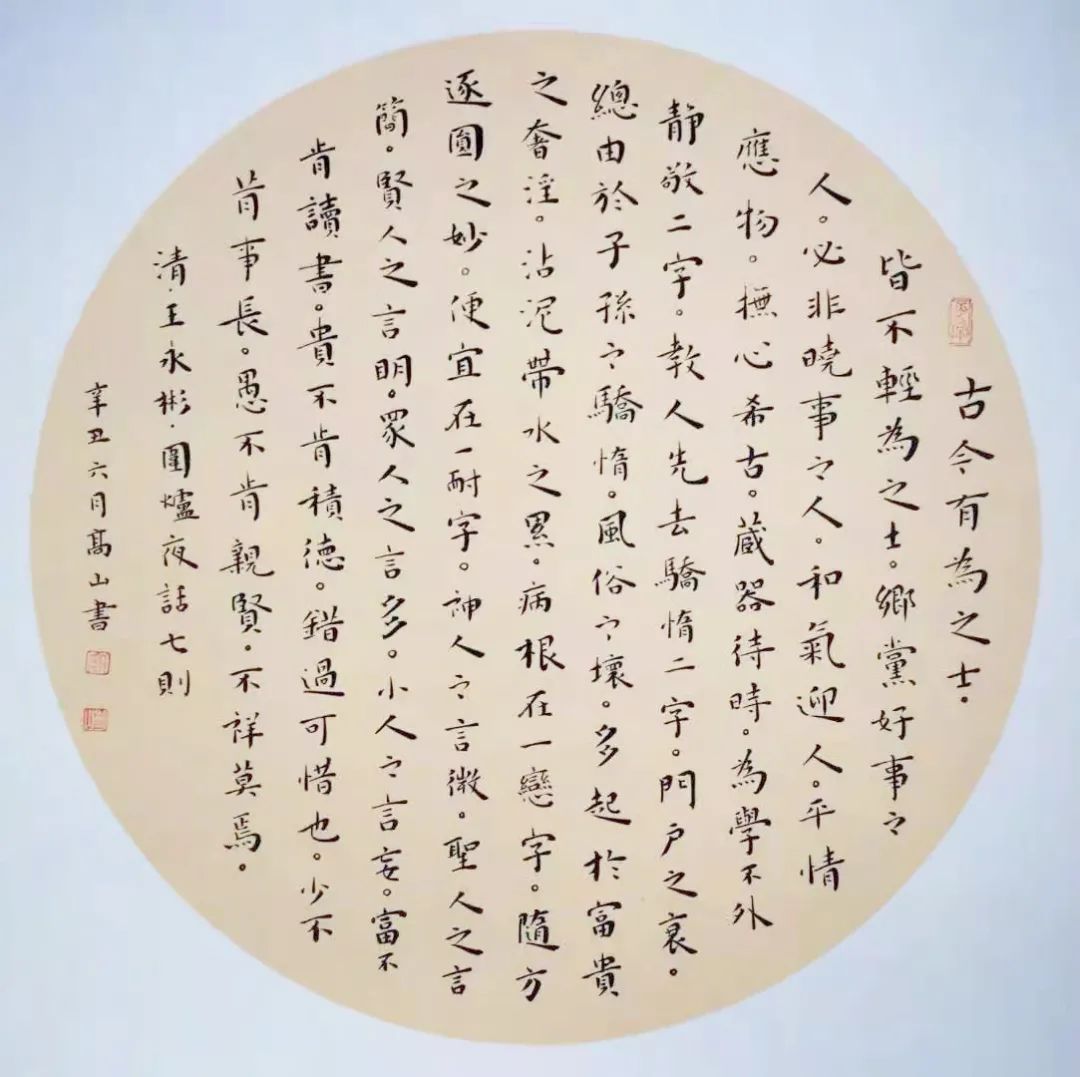 古今有為之士。
皆不輕為之士。鄉黨好事之
人。必非曉事之人。和氣迎人。平情
應物。撫心希古。藏器待時。為學不外
靜敬二字。教人先去驕惰二字。門戶之衰。
總由於子孫之驕惰。風俗之壞。多起於富貴
之奢淫。沾泥帶水之累。病根在一戀字。隨方
逐圓之妙。便宜在一耐字。神人之言微。聖人之言
簡。賢人之言明。眾人之言多。小人之言妄。富不
肯讀書。貴不肯積德。錯過可惜也。少不
肯事長。愚不肯親賢。不祥莫焉。
清·王永彬·圍爐夜話七則
辛丑六月高山書